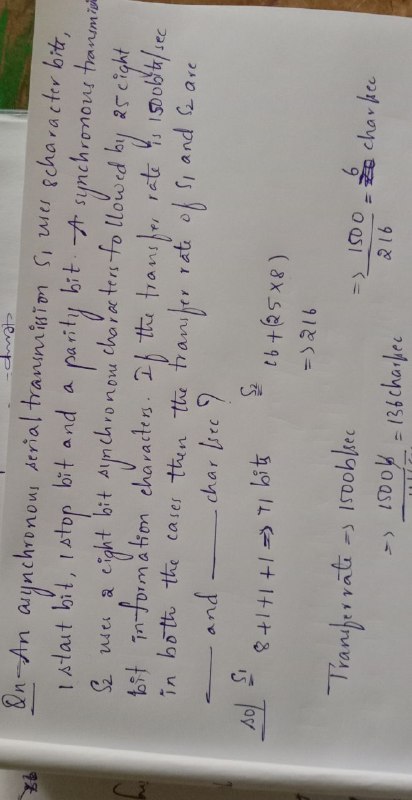 Qn- An asynchronous serial transmission S1 uses 8character bits,
1 start bit, 1 stop bit and a parity bit. A synchronous transmission
S2 uses 2 eight bit synchronous characters followed by 25 eight
bit information characters. If the transfer rate is 1500bits/sec
in both the cases then the transfer rate of S1 and S2 are
___ and ___ char/sec?
sol S1 S2
8+1+1+1 => 11 bits 16+(25×8)
=> 216
Transfer rate => 1500b/sec
=> 1500b = 136char/sec => 1500/216 = 6 char/sec